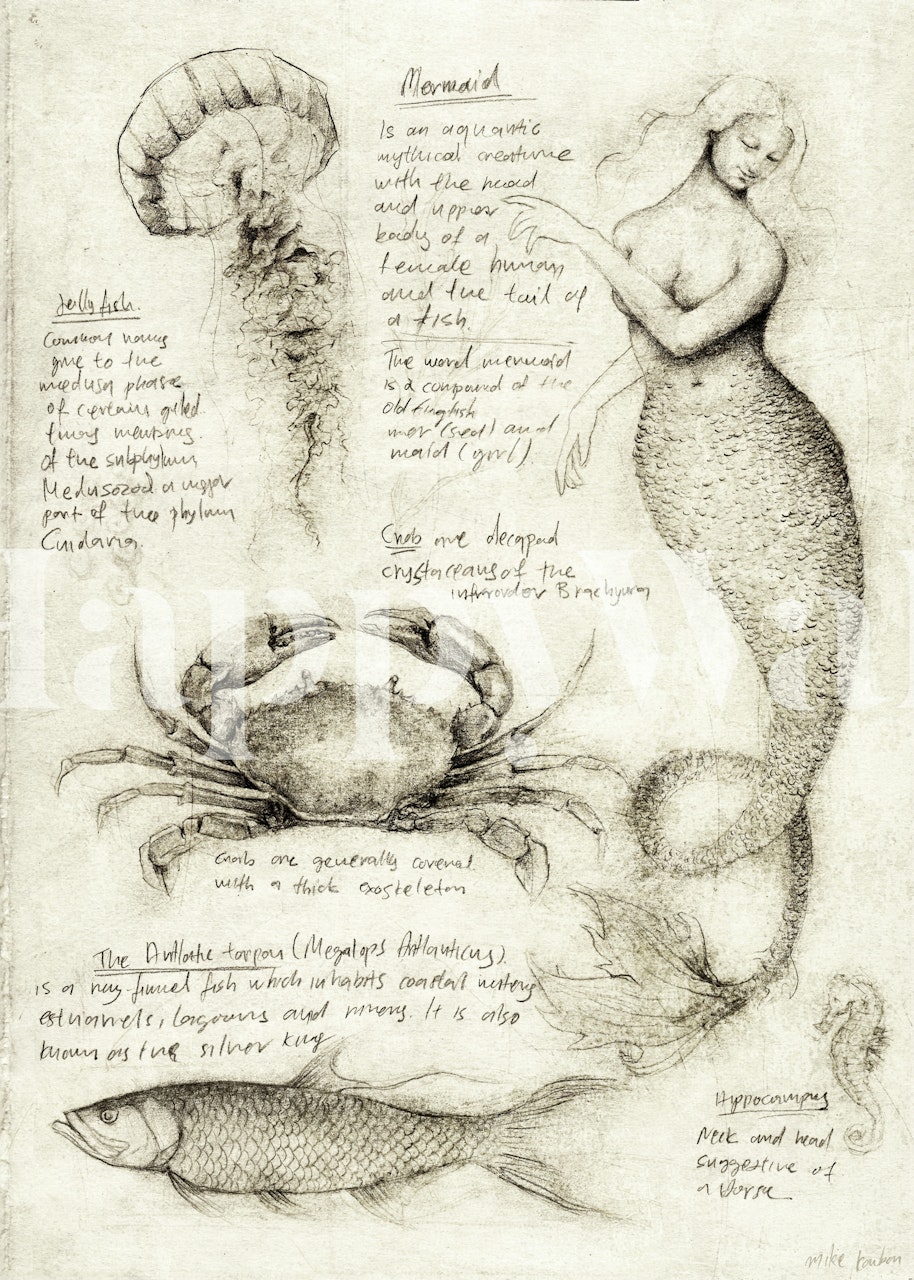 Mermaid
Is an aquantic
mythical creature
with the head
and upper
body of a
female human
and the tail of
a fish.
The word mermaid
is a compound of the
old English
mer (sea) and
maid (girl)
Jelly fish.
Common name
give to the
medusa phase
of certain
of the subphylum
Medusozoa a major
part of the phylum
Cnidaria.
Crab are decapod
crystaceans of the
infraorder Brachyura
happywall
Crab are generally covered
with a thick exosteleton
The Antlantic tarpon (Megalops Antlanticus)
is a ray-finned fish which inhabits coastal waters
estuaries, lagoons and rivers. It is also
known as the silver king
Hippocampus
Neck and head
suggestive of
a Horse
mike koubou